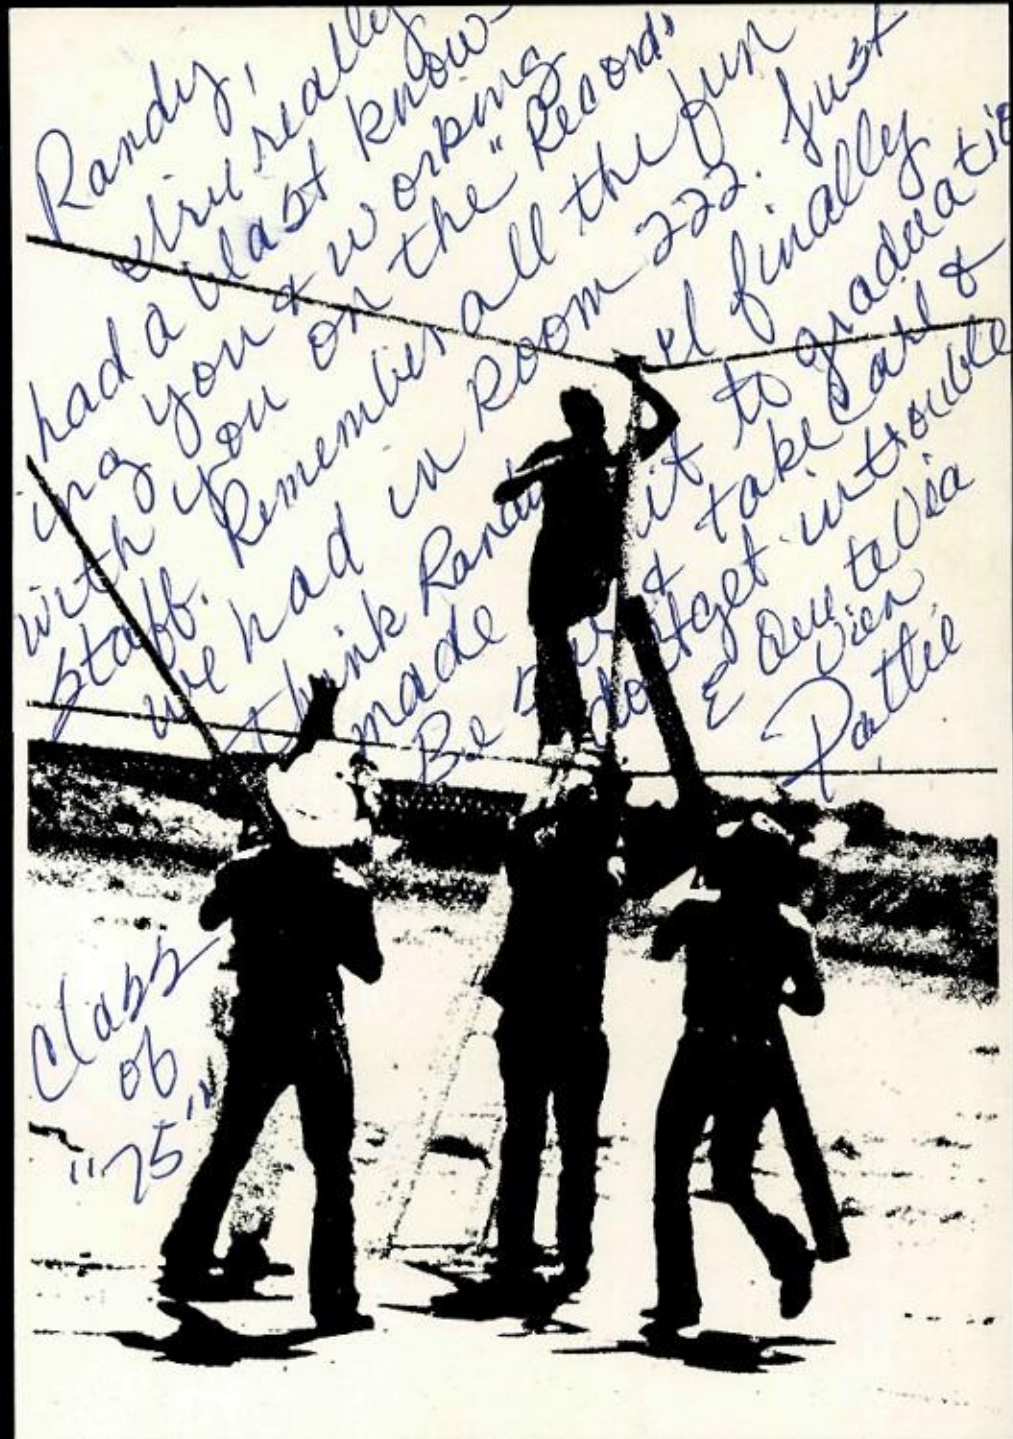 Randy,
I've really
had a blast know-
ing you & working
with you on the "Records
staff. Remember all the fun
we had in Room 222. Just
think Randy "I finally
made it to graduatio
Be sure & take care &
don't get in trouble
E Que te Via
Vien
Pattie
Class
of
"75"